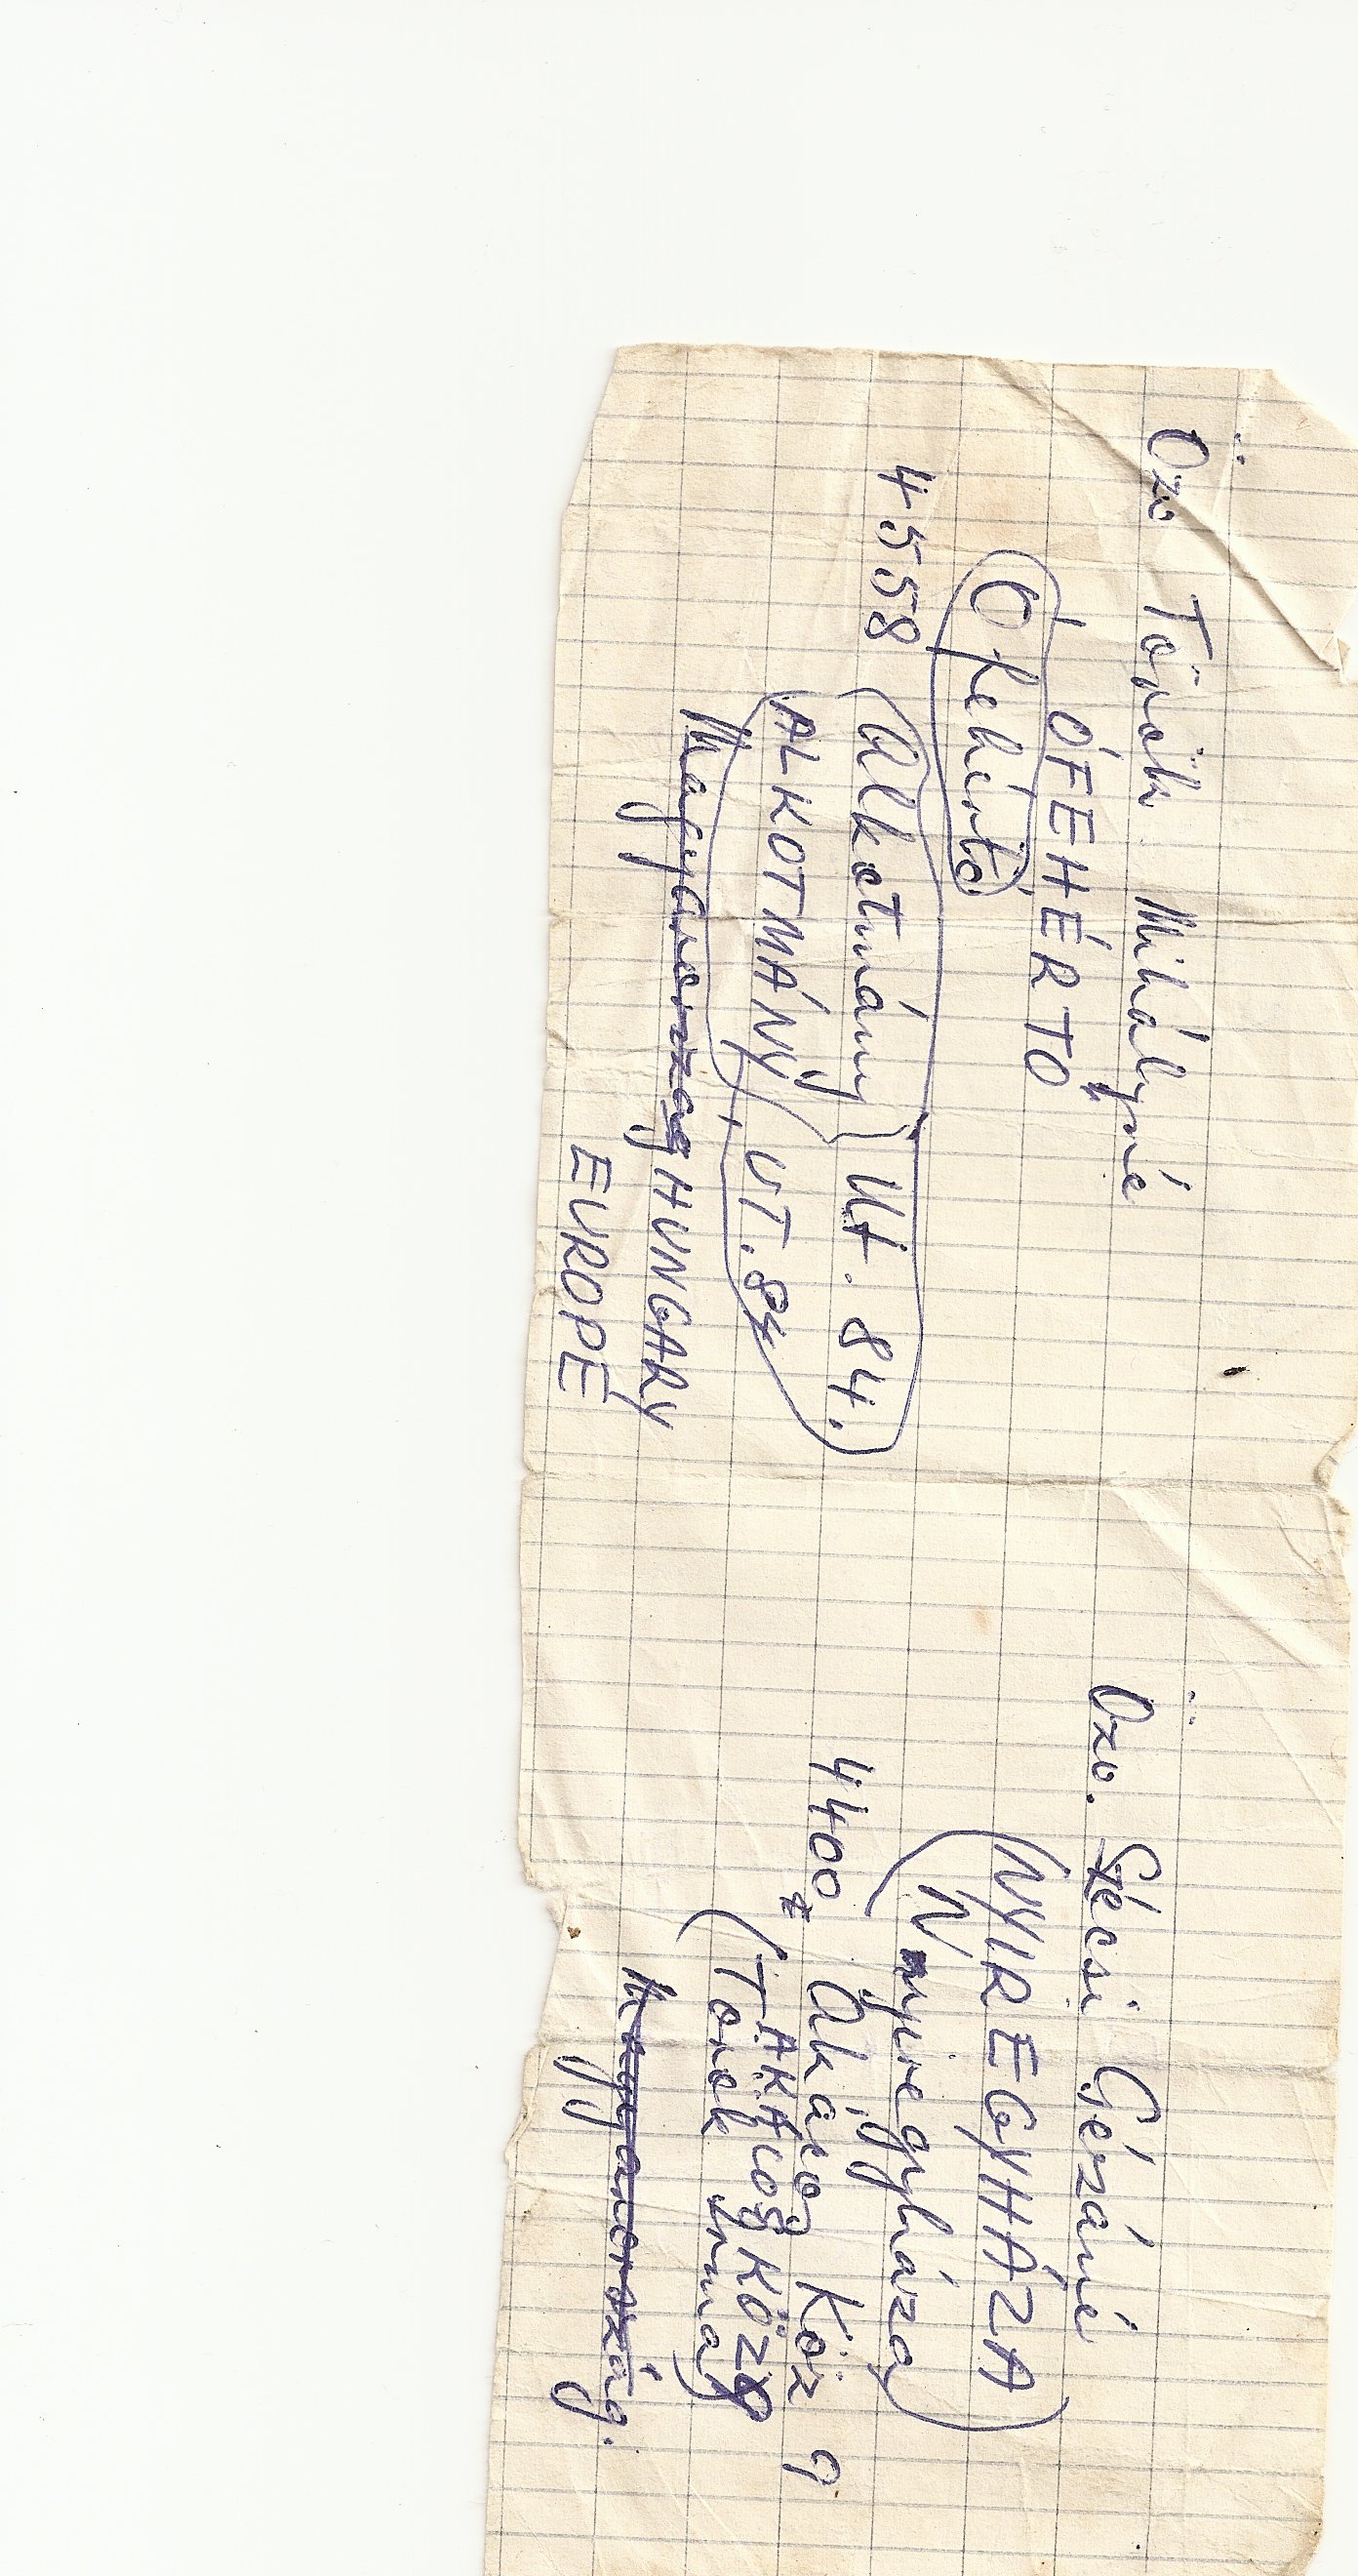 Özv Török Mihályné
ÓFEHÉRTÓ
Ófehértó
4558 Alkotmány Ut. 84.
ALKOTMÁNY UT. 84
Magyarország HUNGARY
EUROPE
Özv. Stécsi Gézáné
(NYIREGYHÁZA)
(Nyiregyháza)
4400 Akácog Köz 9
AKÁCOG KÖZ 9
(Torok irma)
Magyarország.